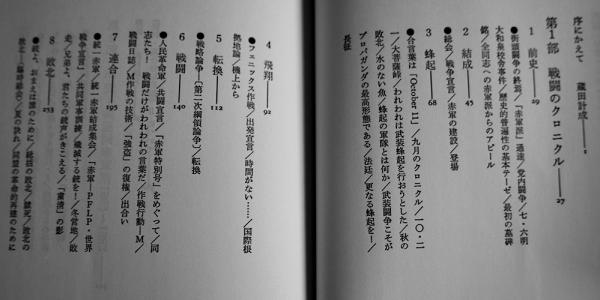 序にかえて　蔵田計成——1
第1部　戦闘のクロニクル——27
1　前史——29
●街頭闘争の終焉／「赤軍派」通達／党内闘争／七・六明
大和泉校舎事件／歴史的普遍性の基本テーゼ／最初の墓碑
銘／全同志への赤軍派からのアピール
2　結成——45
●総会／戦争宣言／赤軍の建設／登場
3　蜂起——68
●合言葉は「October 11」／九月のクロニクル／一〇・二
一／大菩薩峠／われわれは武装蜂起を行おうとした／秋の
敗北／水のない魚／蜂起の軍隊とは何か／武装闘争こそが
プロパガンダの最高形態である／法廷／更なる蜂起を！／
長征
4　飛翔——92
●フェニックス作戦／出発宣言／時間がない……／国際根
拠地論／機上から
5　転換——112
●戦略論争（〔第二次綱領論争〕）／転換
6　戦闘——140
●人民革命軍／共同宣言／『赤軍特別号』をめぐって／同
志たち！　戦闘だけがわれわれの言葉だ／作戦行動—M／
戦闘日誌／M作戦の技術／「強盗」の復権／出合い
7　連合——195
●統一赤軍／統一赤軍結成集会／『赤軍—PFLP・世界
戦争宣言』／共同軍事訓練／殲滅する銃を！／冬営地／敗
走／兄弟よ、君たちの銃声がきこえる／「粛清」の影
8　敗北——253
●銃よ、おまえは誰のために／銃撃の敗北／獄死／敗北の